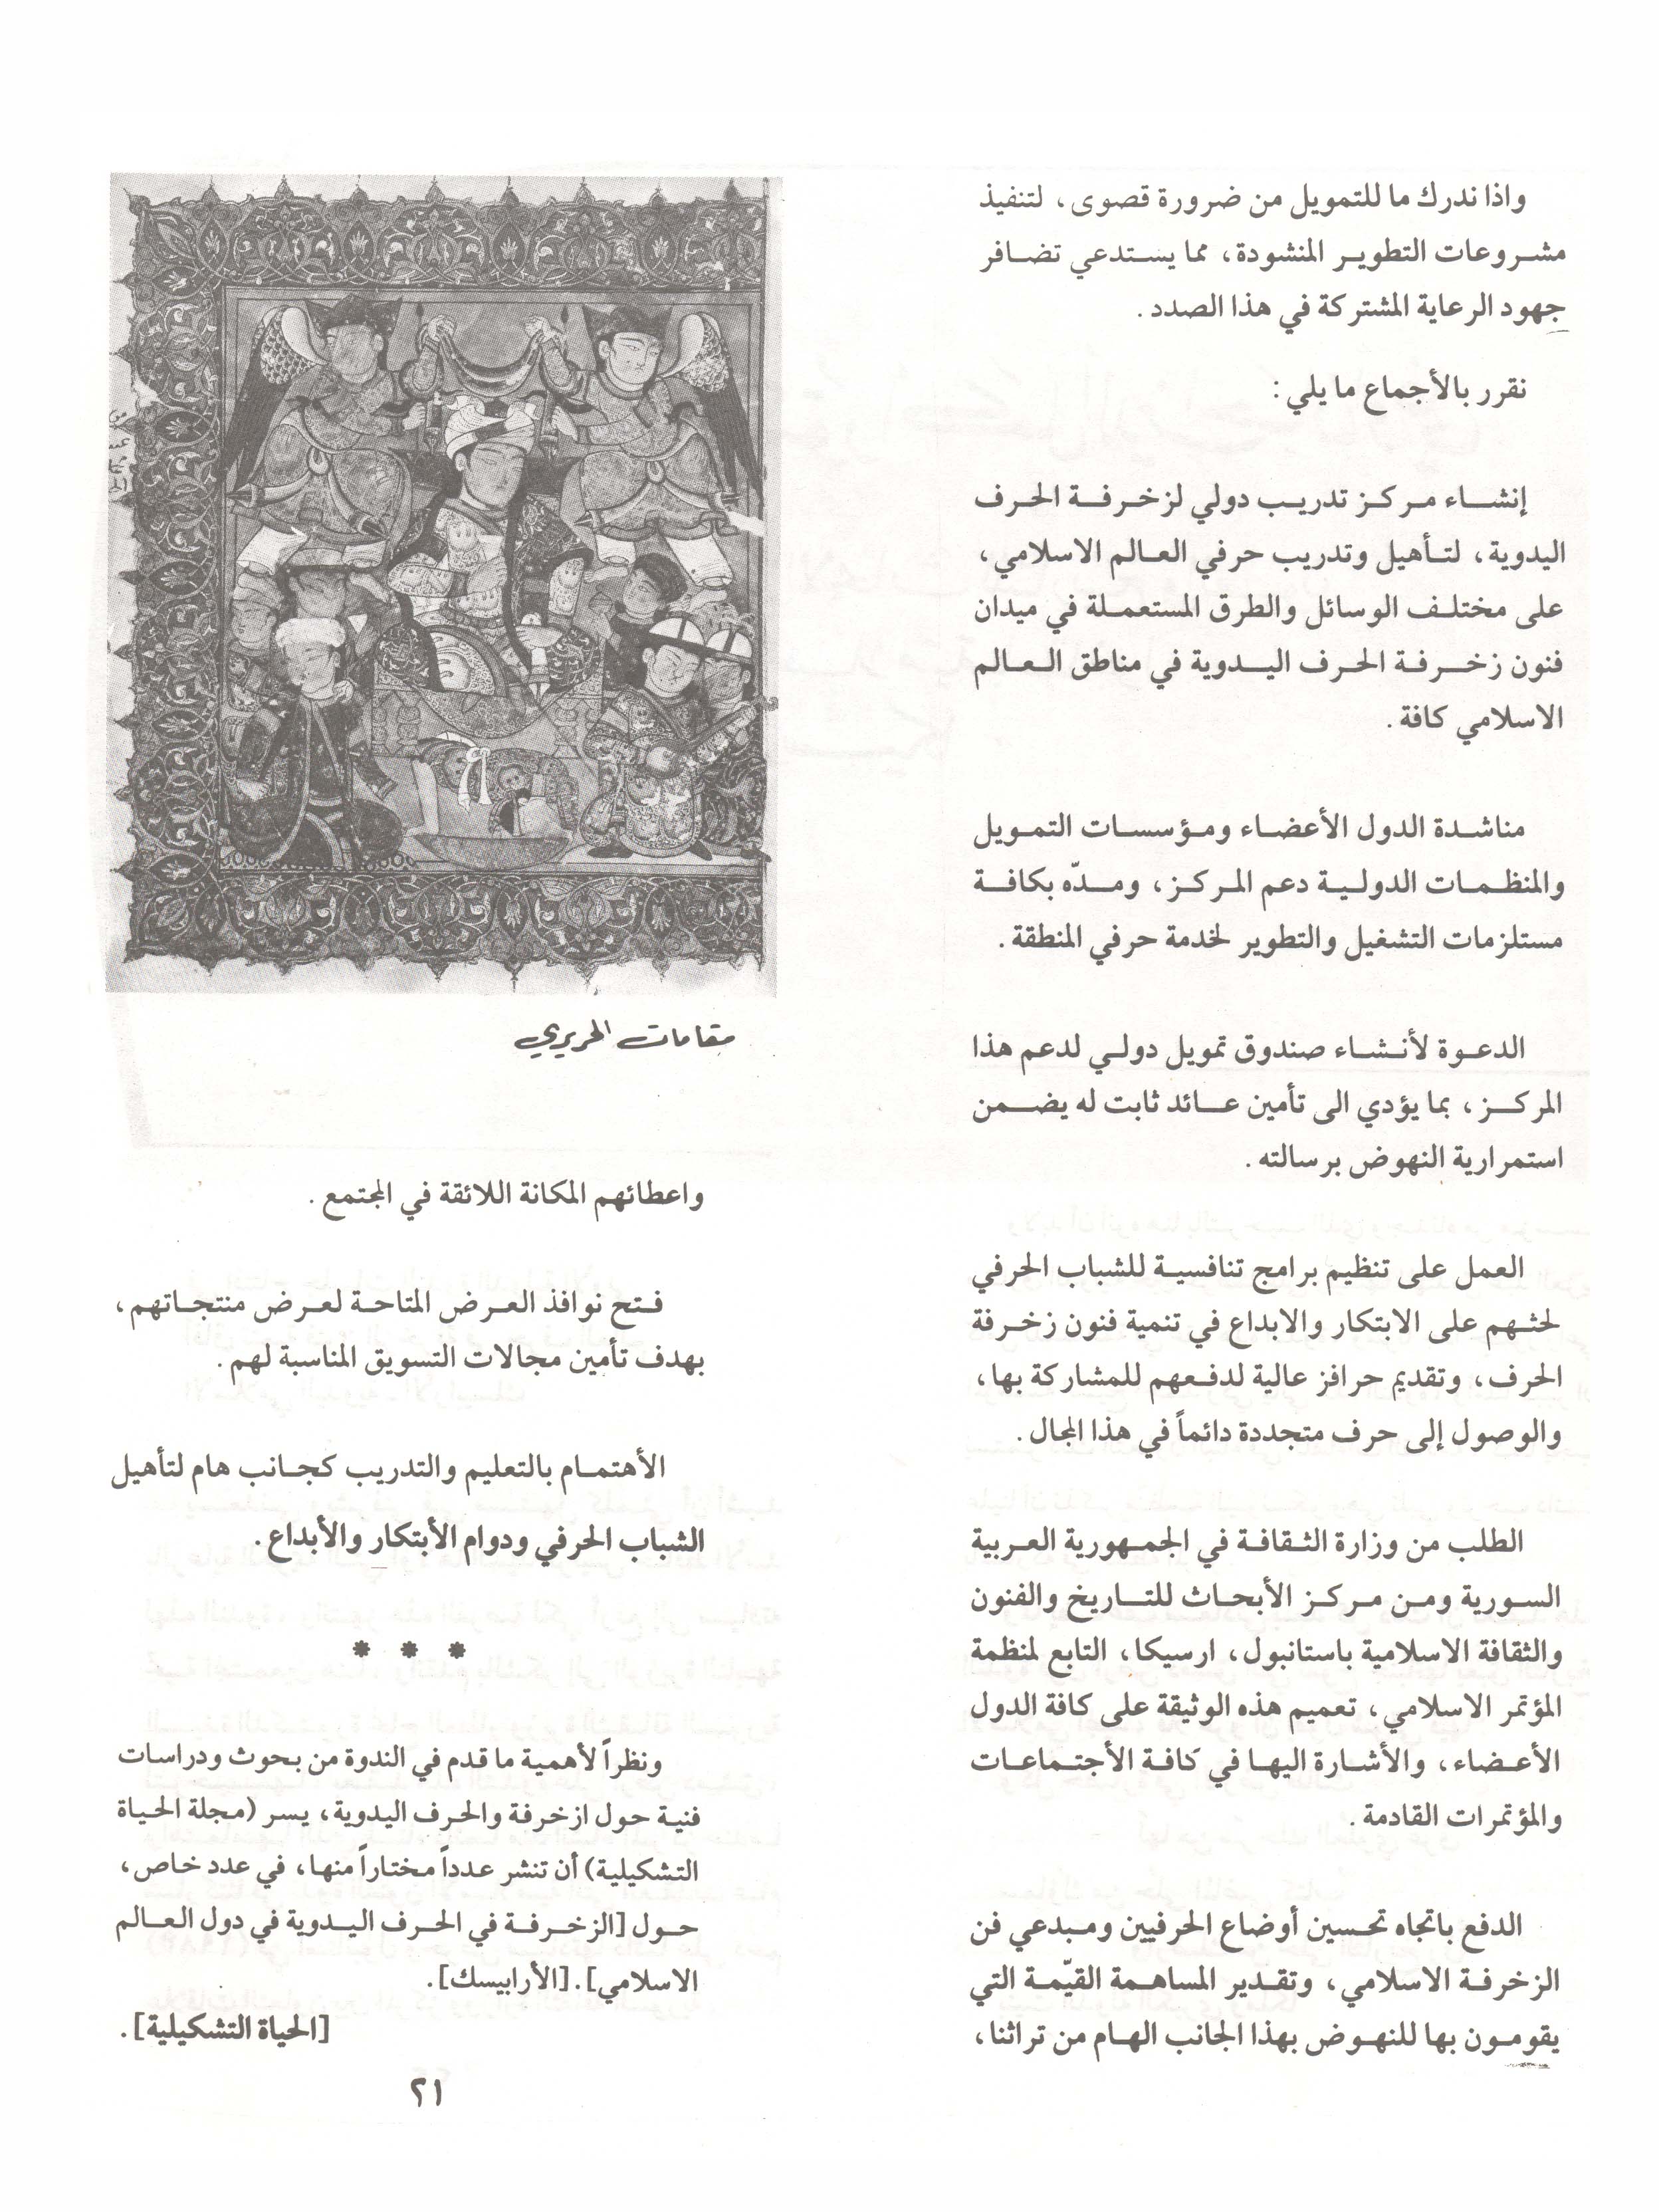 واذا ندرك ما للتمويل من ضرورة قصوى، لتنفيذ
مشروعات التطوير المنشودة، مما يستدعي تضافر
جهود الرعاية المشتركة في هذا الصدد.
نقرر بالأجماع ما يلي:
إنشاء مركز تدريب دولي لزخرفة الحرف
اليدوية، لتأهيل وتدريب حرفي العالم الاسلامي،
على مختلف الوسائل والطرق المستعملة في ميدان
فنون زخرفة الحرف اليدوية في مناطق العالم
الاسلامي كافة.
مناشدة الدول الأعضاء ومؤسسات التمويل
والمنظمات الدولية دعم المركز، ومدّه بكافة
مستلزمات التشغيل والتطوير لخدمة حرفي المنطقة.
الدعوة لأنشاء صندوق تمويل دولي لدعم هذا
المركز، بما يؤدي الى تأمين عائد ثابت له يضمن
استمرارية النهوض برسالته.
العمل على تنظيم برامج تنافسية للشباب الحرفي
لحثهم على الابتكار والابداع في تنمية فنون زخرفة
الحرف، وتقديم حرافز عالية لدفعهم للمشاركة بها،
والوصول إلى حرف متجددة دائماً في هذا المجال.
الطلب من وزارة الثقافة في الجمهورية العربية
السورية ومن مركز الأبحاث للتاريخ والفنون
والثقافة الاسلامية باستانبول، ارسيكا، التابع لمنظمة
المؤتمر الاسلامي، تعميم هذه الوثيقة على كافة الدول
الأعضاء، والأشارة اليها في كافة الأجتماعات
والمؤتمرات القادمة.
الدفع باتجاه تحسين أوضاع الحرفيين ومبدعي فن
الزخرفة الاسلامي، وتقدير المساهمة القيّمة التي
يقومون بها للنهوض بهذا الجانب الهام من تراثنا،
مقامات الحريري
واعطائهم المكانة اللائقة في المجتمع.
فتح نوافذ العرض المتاحة لعرض منتجاتهم،
بهدف تأمين مجالات التسويق المناسبة لهم.
الأهتمام بالتعليم والتدريب كجانب هام لتأهيل
الشباب الحرفي ودوام الأبتكار والأبداع.
* * *
ونظراً لأهمية ما قدم في الندوة من بحوث ودراسات
فنية حول ازخرفة والحرف اليدوية، يسر (مجلة الحياة
التشكيلية) أن تنشر عدداً مختاراً منها، في عدد خاص،
حول [الزخرفة في الحرف اليدوية في دول العالم
الاسلامي]. [الأرابيسك].
[الحياة التشكيلية].
٢١